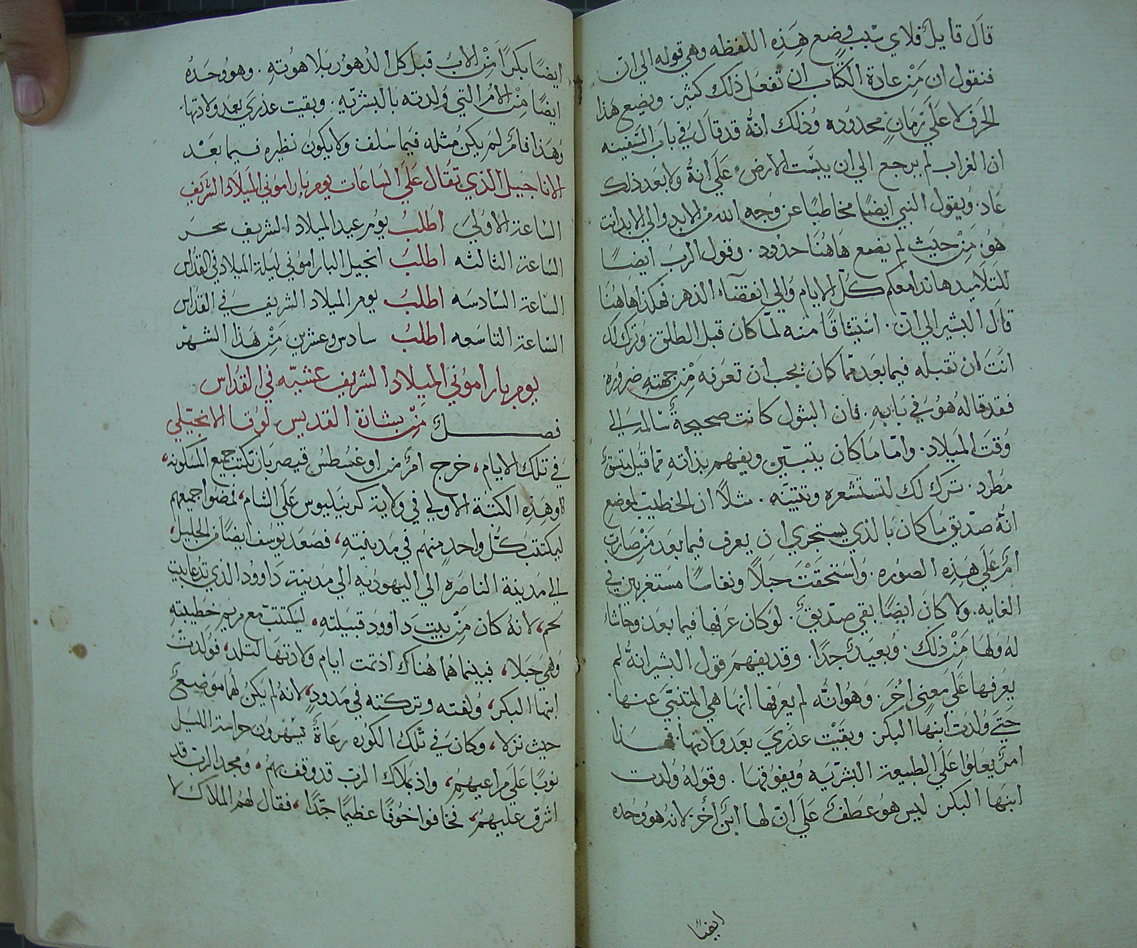 قال قايل فلاي سبب وضع هذه اللفظه وهي قوله الى ان
فنقول ان من عادة الكتاب ان تفعل ذلك كثير. ويضع هذا
الحرف لا على زمان محدوده وذلك انه قد قال في باب السفينه
ان الغراب لم يرجع الي ان يبست الارض علي انه ولا بعد ذلك
عاد. ويقول النبي ايضا مخاطبا عن وجه الله من الابد والي الابد انت
هو. من حيث لم يضع هاهنا حدود. وقول الرب ايضا
للتلاميد هاندا معكم كل الايام والي انقضاء الدهر فهكدا هاهنا
قال البشير الى ان. استيثاقا منه لما كان قبل الطلق. وترك لك
انت ان تقبله فيما بعد مما كان يجب ان تعرفه من جهته ضروره
فقد قاله هو في بابه. فان البتول كانت صحيحة سالمه الي
وقت الميلاد. واما ما كان يتبين ويفهم بذاته مما قيل بنوع
مطرد. ترك لك لتستشعره وتثبته. مثلا ان الخطيب لوضع
انه صديق ما كان بالذي يستجري ان يعرف فيما بعد من صارت
ام علي هذه الصوره. واستحقت حبلا ونفاسا مستغربين في
الغايه. ولا كان ايضا بقي صديق. لو كان عرفها فيما بعد وحاشا
له ولها من ذلك. وبعيد جدا. وقد يفهم قول البشير انه لم
يعرفها على معني اخر. وهو انه لم يعرفها انها هي المتنبي عنها.
حتي ولدت ابنها البكر وبقيت عذري بعد ولادتها فهدا
امر يعلوا علي الطبيعة البشريه ويفوقها. وقوله ولدت
ابنها البكر ليس هو عطف علي ان لها ابن اخر. لانه هو وحده
ايضا
ايضا بكرا من الاب قبل كل الدهور بلاهوته. وهو وحده
ايضا من الام التي ولدته بالبشريه. وبقيت عذري بعد ولادتها
وهذا فامر لم يكن مثله فيما سلف ولا يكون نظيره فيما بعد
الاناجيل الذي تقال علي الساعات يوم باراموني الميلاد الشريف
الساعة الاولي اطلب يوم عيد الميلاد الشريف سحر
الساعة الثالثه اطلب انجيل الباراموني ليلة الميلاد في القداس
الساعة السادسه اطلب يوم الميلاد الشريف في القداس
الساعة التاسعه اطلب سادس وعشرين من هذا الشهر
يوم باراموني الميلاد الشريف عشيه في القداس
فصل من بشارة القديس لوقا الانجيلي
في تلك الايام، خرج امر من اوغسطس قيصر بان تكتتب جميع المسكونه،
وهذه الكتبة الاولي في ولاية كرينيليوس علي الشام، فمضوا جميعهم
ليكتتب كل واحد منهم في مدينته، فصعد يوسف ايضا من الجليل،
الي مدينة الناصره الي اليهوديه الي مدينة داوود الذي تدعا بيت
لحم، لانه كان من بيت داوود قبيلته، ليكتتب مع مريم خطيبته
وهي حبلا، فبينما هما هناك اد تمت ايام ولادتها لتلد، فولدت
ابنها البكر، ولفته وتركته في مدود، لانه لم يكن لهما موضع
حيث نزلا، وكان في تلك الكوره رعاة يسهرون حراسة الليل
نوبا علي مراعيهم، واذ بملاك الرب قد وقف بهم، ومجد الرب قد
اشرق عليهم، فخافوا خوفا عظيما جدا، فقال لهم الملاك لا